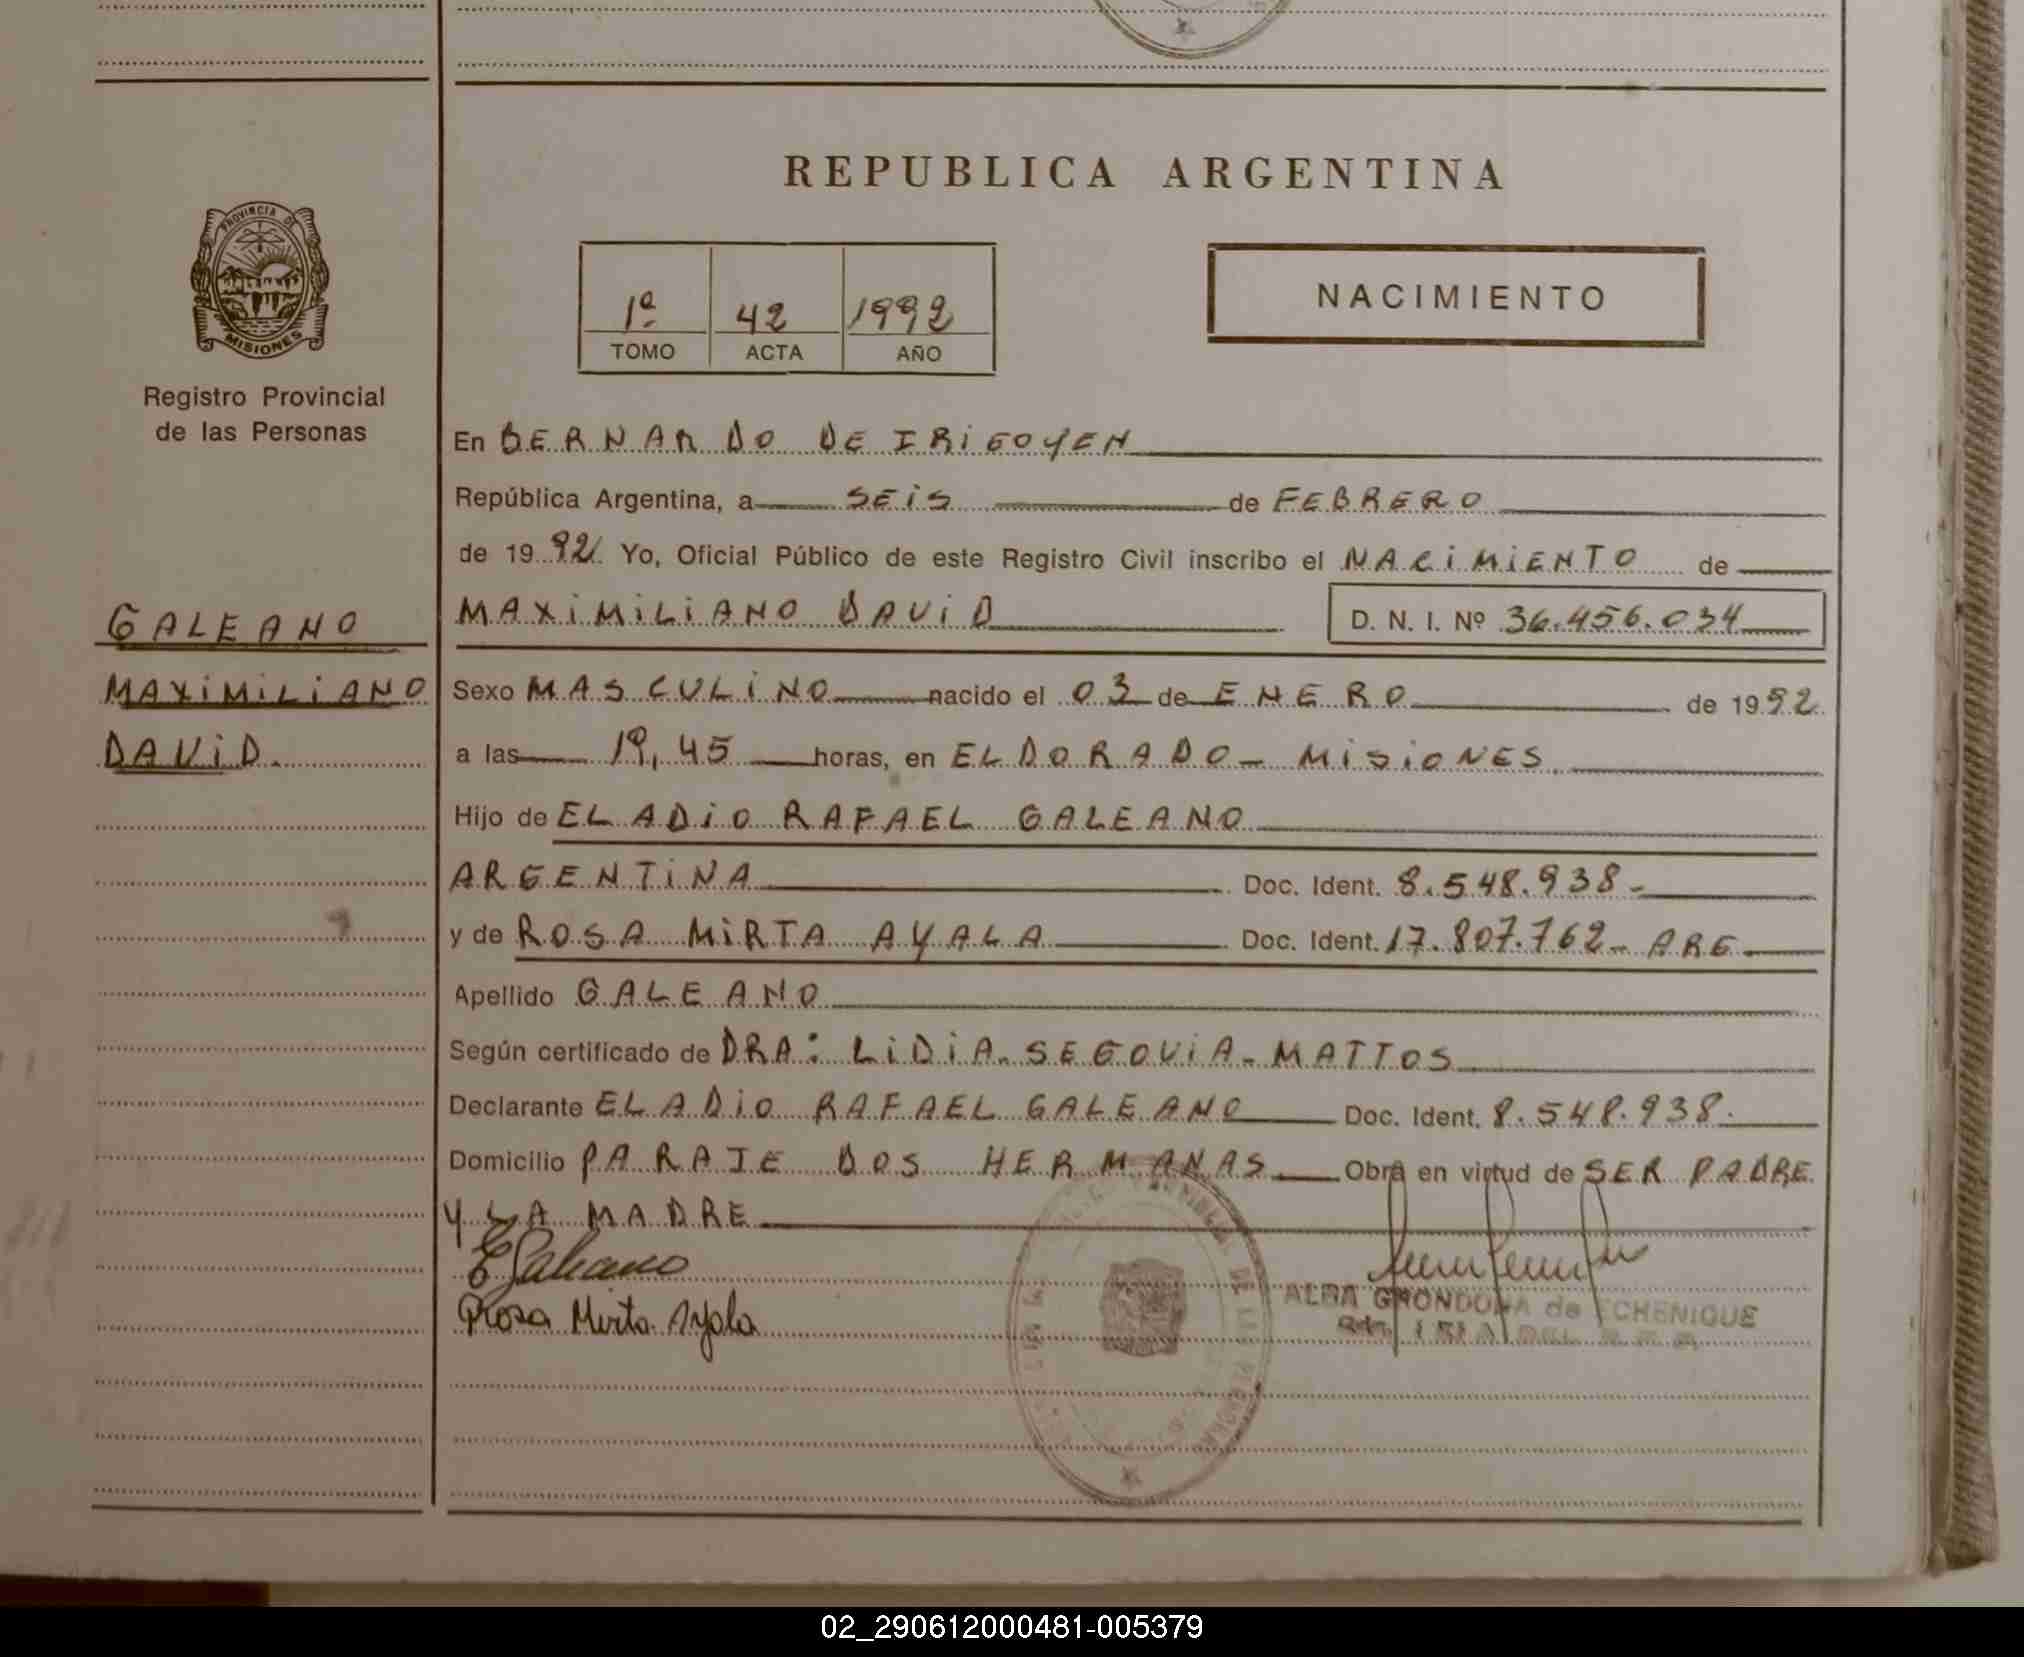 REPUBLICA ARGENTINA
PROVINCIA DE
MISIONES
Registro Provincial
de las Personas
1º 42 1992
TOMO ACTA AÑO
NACIMIENTO
En BERNARDO DE IRIGOYEN
República Argentina, a SEIS de FEBRERO
de 1992 Yo, Oficial Público de este Registro Civil inscribo el NACIMIENTO de
GALEANO
MAXIMILIANO
DAVID.
MAXIMILIANO DAVID D. N. I. Nº 36.456.034
Sexo MASCULINO nacido el 03 de ENERO de 1992
a las 19,45 horas, en ELDORADO - MISIONES
Hijo de ELADIO RAFAEL GALEANO
ARGENTINA Doc. Ident. 8.548.938-
y de ROSA MIRTA AYALA Doc. Ident. 17.807.762- ARG
Apellido GALEANO
Según certificado de DRA: LIDIA-SEGOVIA-MATTOS
Declarante ELADIO RAFAEL GALEANO Doc. Ident. 8.548.938.
Domicilio PARAJE DOS HERMANAS Obra en virtud de SER PADRE
Y LA MADRE
EGaleano
Rosa Mirta Ayala
ALBA GRONDONA de ECHENIQUE
02_290612000481-005379